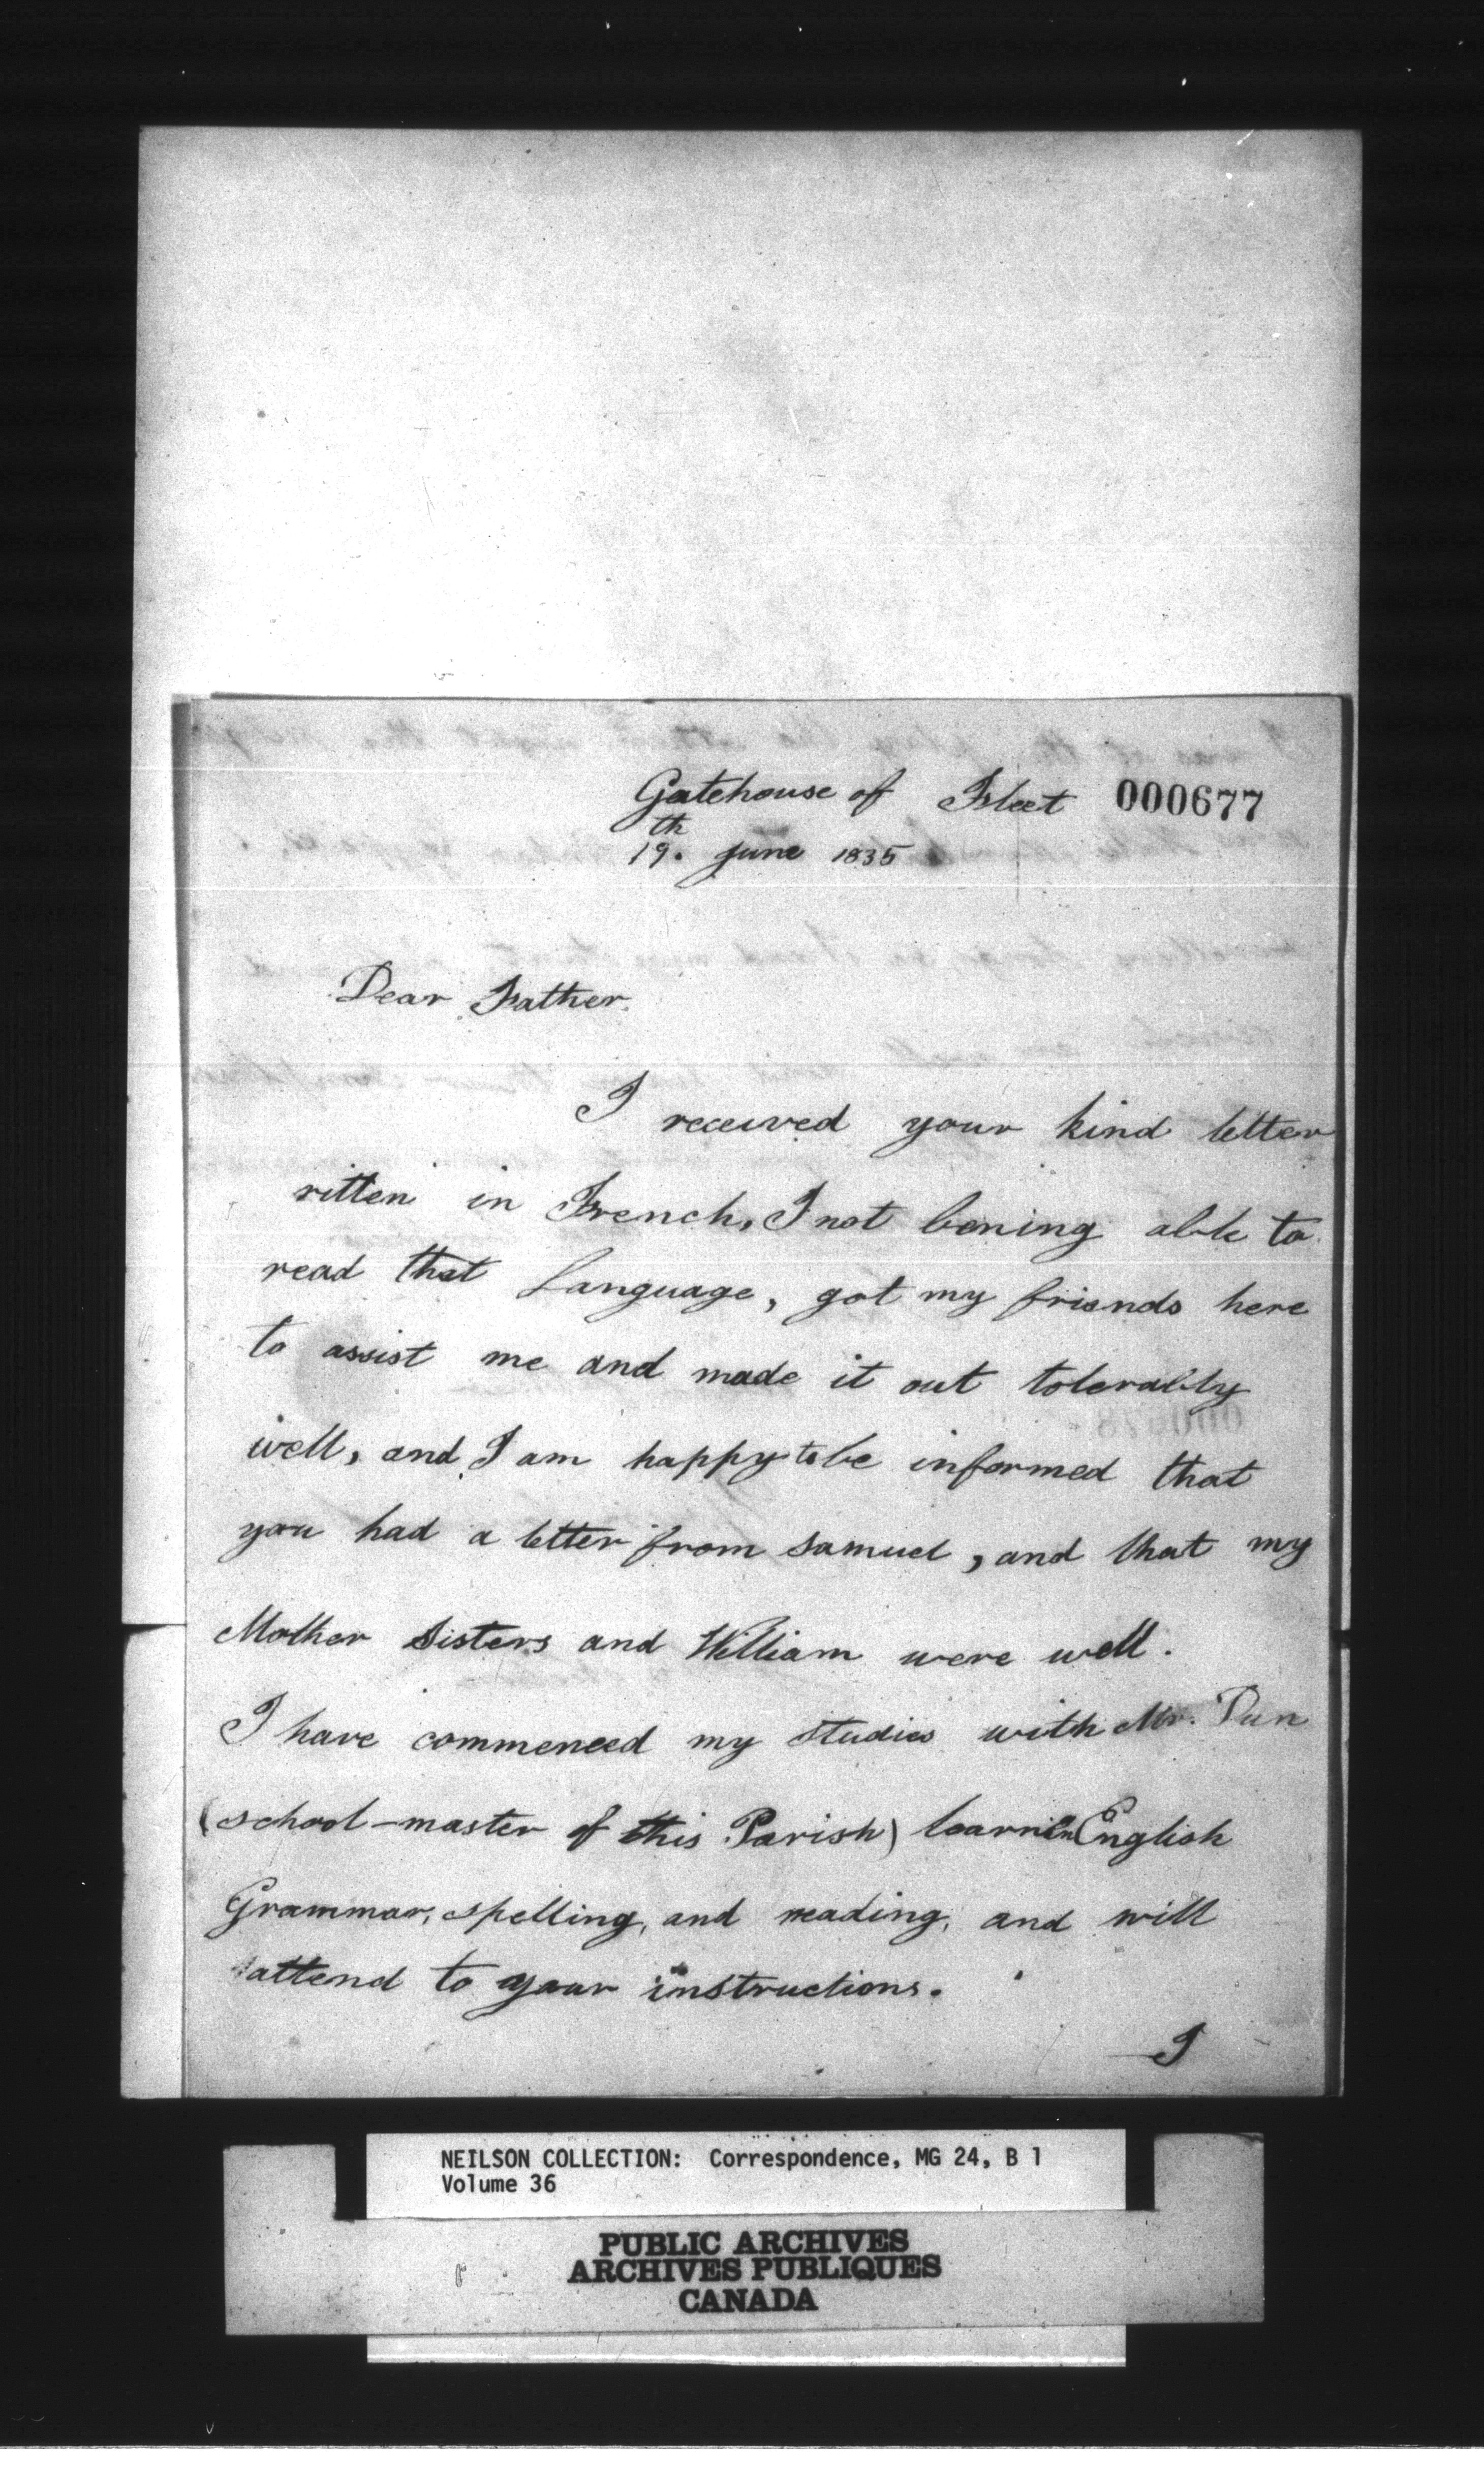 Gatehouse of Fleet 000677
19.th June 1835
Dear Father.
I received your kind letter
ritten in French, I not bening able to
read that Language, got my friends here
to assist me and made it out tolerably
well, and I am happy to be informed that
you had a letter from Samuel, and that my
Mother Sisters and William were well.
I have commenced my studies with Mr. Dun
(school-master of this Parish) learnin English
Grammar, spelling, and reading, and will
attend to your instructions.
I
NEILSON COLLECTION: Correspondence, MG 24, B 1
Volume 36
PUBLIC ARCHIVES
ARCHIVES PUBLIQUES
CANADA